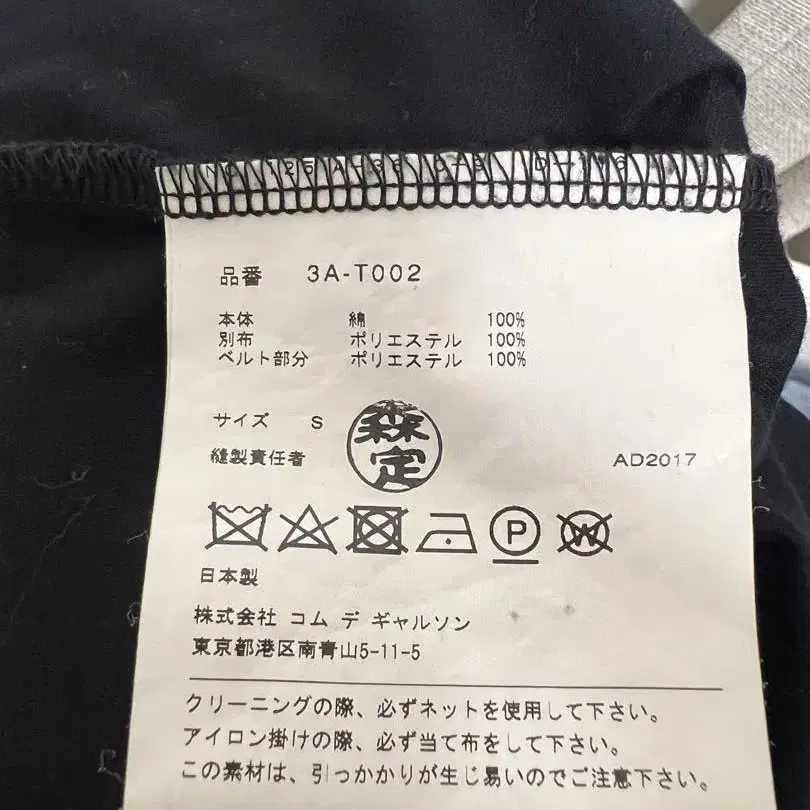 品番 3A-T002
本体 綿 100%
別布 ポリエステル 100%
ベルト部分 ポリエステル 100%
サイズ S
森定
縫製責任者 AD2017
P
W
日本製
株式会社 コム デ ギャルソン
東京都港区南青山5-11-5
クリーニングの際、必ずネットを使用して下さい。
アイロン掛けの際、必ず当て布をして下さい。
この素材は、引っかかりが生じ易いのでご注意下さい。